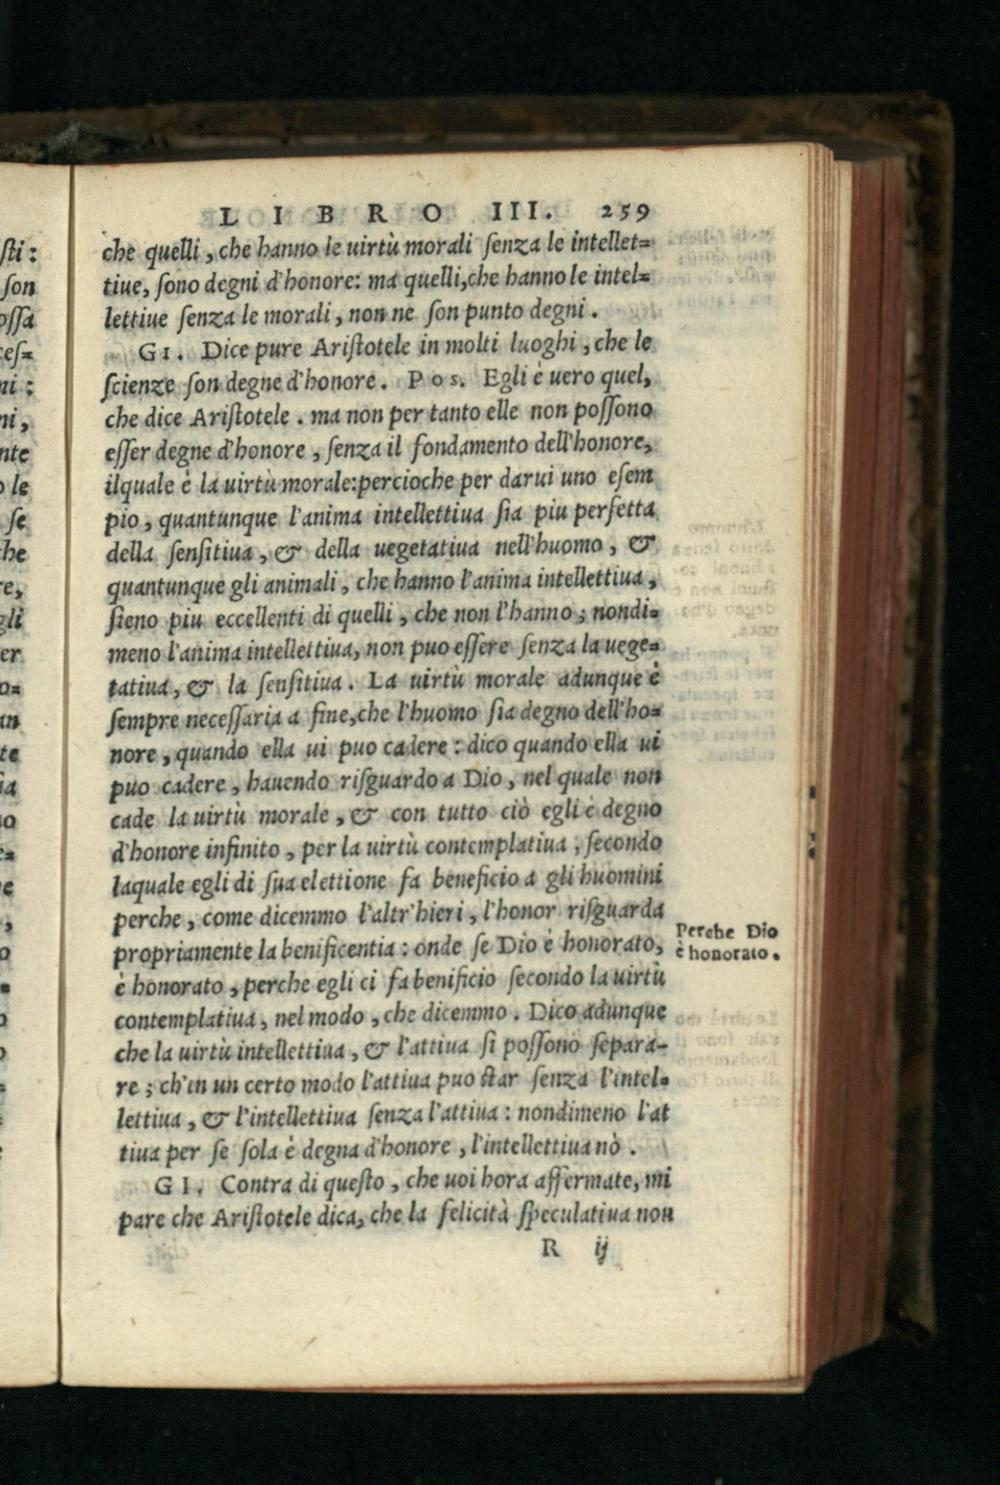 LIBRO III. 259
che quelli, che hanno le uirtù morali ſenza le intellet=
tiue, ſono degni d'honore: ma quelli, che hanno le intel=
lettiue ſenza le morali, non ne ſon punto degni.
GI. Dice pure Ariſtotele in molti luoghi, che le
ſcienze ſon degne d'honore. Pos. Egli è uero quel,
che dice Ariſtotele. ma non per tanto elle non poſſono
eſſer degne d'honore, ſenza il fondamento dell'honore,
ilquale è la uirtù morale: percioche per darui uno eſem
pio, quantunque l'anima intellettiua ſia piu perfetta
della ſenſitiua, & della uegetatiua nell'huomo, &
quantunque gli animali, che hanno l'anima intellettiua,
ſieno piu eccellenti di quelli, che non l'hanno; nondi=
meno l'anima intellettiua, non puo eſſere ſenza la uege=
tatiua, & la ſenſitiua. La uirtù morale adunque è
ſempre neceſſaria a fine, che l'huomo ſia degno dell'ho=
nore, quando ella ui puo cadere: dico quando ella ui
puo cadere, hauendo riſguardo a Dio, nel quale non
cade la uirtù morale, & con tutto ciò egli è degno
d'honore infinito, per la uirtù contemplatiua, ſecondo
laquale egli di ſua elettione fa beneficio a gli huomini
perche, come dicemmo l'altr'hieri, l'honor riſguarda
propriamente la benificentia: onde ſe Dio è honorato,
è honorato, perche egli ci fa benificio ſecondo la uirtù
contemplatiua, nel modo, che dicemmo. Dico adunque
che la uirtù intellettiua, & l'attiua ſi poſſono ſepara-
re; ch'in un certo modo l'attiua puo ſtar ſenza l'intel=
lettiua, & l'intellettiua ſenza l'attiua: nondimeno l'at
tiua per ſe ſola è degna d'honore, l'intellettiua nò.
GI. Contra di queſto, che uoi hora affermate, mi
pare che Ariſtotele dica, che la felicità ſpeculatiua non
R ij
Perche Dio
è honorato.
ſti:
ſon
oſſa
ceſ=
ni:
ni,
nte
o le
ſe
he
re,
gli
er
o=
an
te
ia